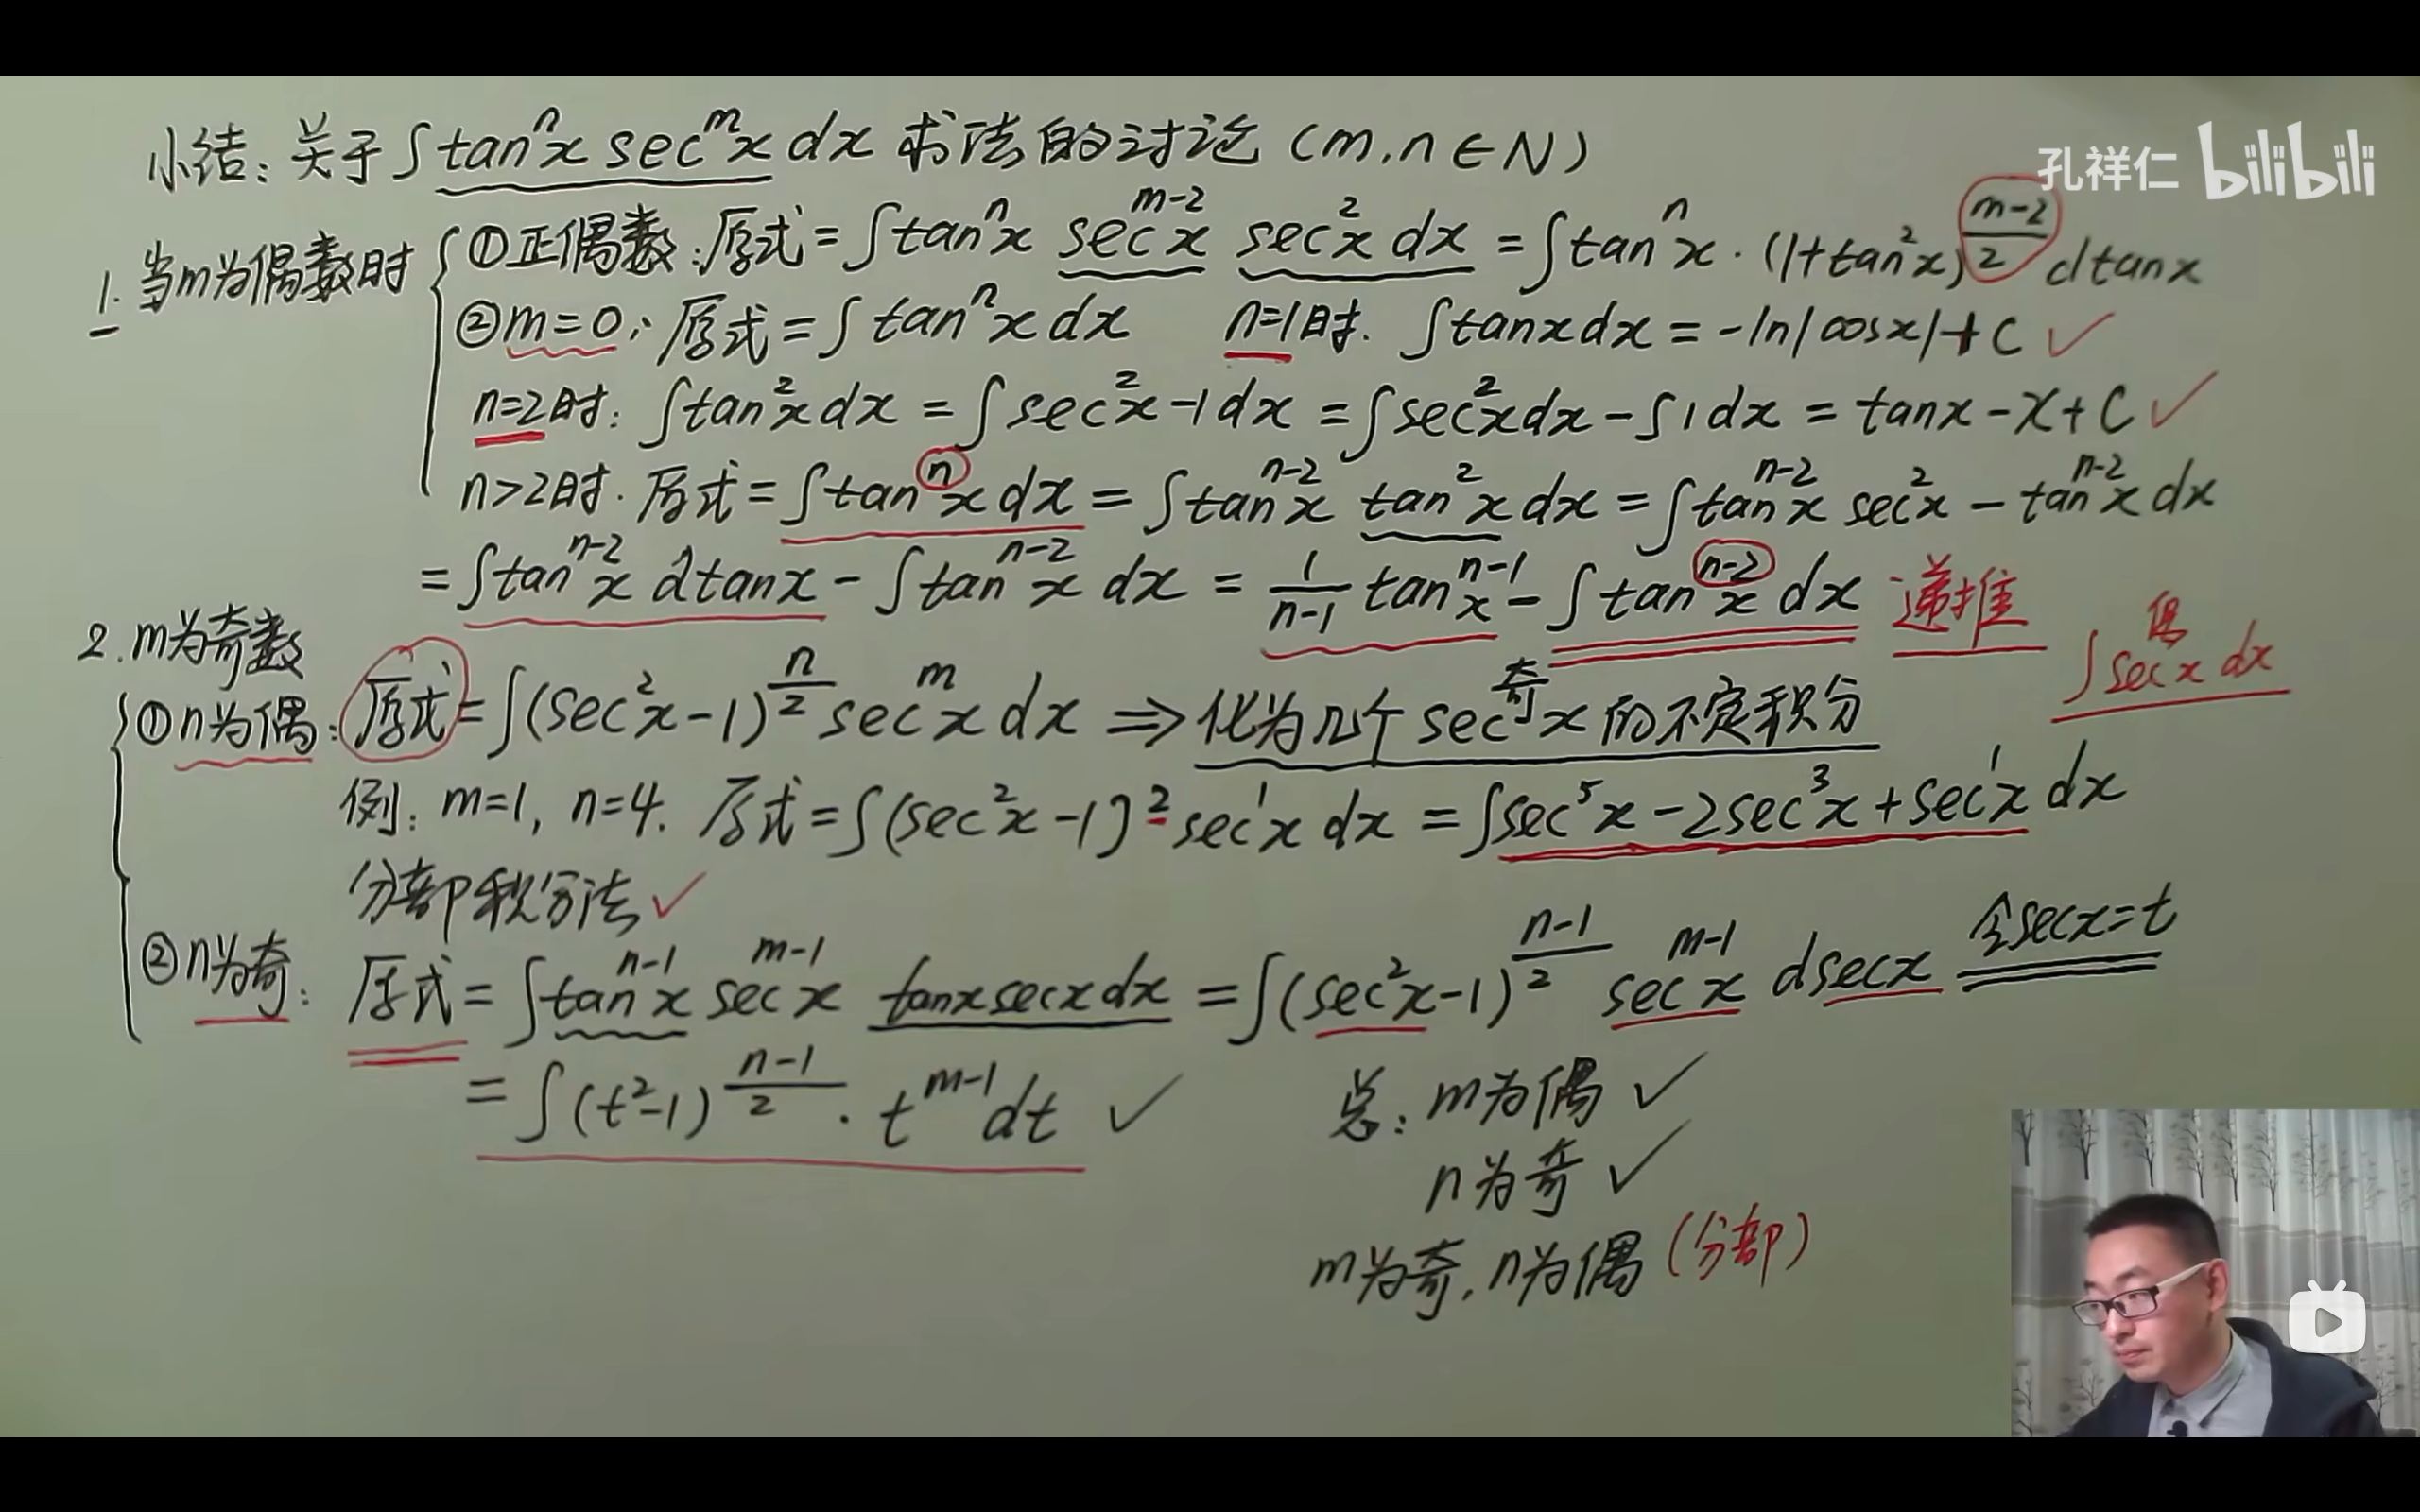 小结: 关于 ∫ tanⁿx secᵐx dx 求法的讨论 (m,n∈N)
孔祥仁 bilibili
1. 当m为偶数时
①正偶数: 原式 = ∫ tanⁿx sec^(m-2)x sec²x dx = ∫ tanⁿx · (1+tan²x)^((m-2)/2) dtanx
②m=0: 原式 = ∫ tanⁿx dx n=1时. ∫tanxdx = -ln|cosx|+C ✓
n=2时: ∫tan²xdx = ∫sec²x-1dx = ∫sec²xdx-∫1dx = tanx-x+C ✓
n>2时. 原式 = ∫tanⁿx dx = ∫tan^(n-2)x tan²x dx = ∫tan^(n-2)x sec²x - tan^(n-2)x dx
= ∫tan^(n-2)x dtanx - ∫tan^(n-2)x dx = 1/(n-1) tan^(n-1)x - ∫tan^(n-2)x dx 递推
∫sec^偶x dx
2. m为奇数
①n为偶: 原式 = ∫(sec²x-1)^(n/2) secᵐx dx ⇒ 化为几个 sec^奇x 的不定积分
例: m=1, n=4. 原式 = ∫(sec²x-1)² sec¹x dx = ∫sec⁵x-2sec³x+sec¹x dx
分部积分法 ✓
②n为奇: 原式 = ∫tan^(n-1)x sec^(m-1)x tanxsecxdx = ∫(sec²x-1)^((n-1)/2) sec^(m-1)x dsecx 令secx=t
= ∫(t²-1)^((n-1)/2) · t^(m-1)dt ✓
总: m为偶 ✓
n为奇 ✓
m为奇, n为偶 (分部)